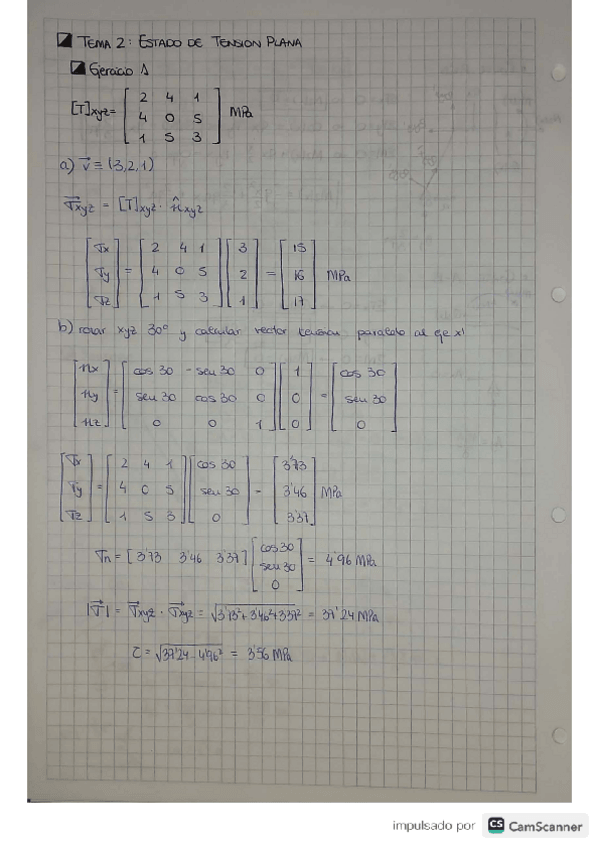 TEMA 2: ESTADO DE TENSION PLANA
Ejercicio 1
[T]xyz = [2 4 1; 4 0 5; 1 5 3] MPa
a) v⃗ ≡ (3,2,1)
σ⃗xyz = [T]xyz · n̂xyz
[σx; σy; σz] = [2 4 1; 4 0 5; 1 5 3] [3; 2; 1] = [15; 16; 17] MPa
b) rotar xyz 30° y calcular vector tension paralelo al eje x'
[nx; ny; nz] = [cos 30 -sen 30 0; sen 30 cos 30 0; 0 0 1] [1; 0; 0] = [cos 30; sen 30; 0]
[σx; σy; σz] = [2 4 1; 4 0 5; 1 5 3] [cos 30; sen 30; 0] = [3'73; 3'46; 3'37] MPa
σn = [3'73 3'46 3'37] [cos 30; sen 30; 0] = 4'96 MPa
|σ⃗| = σ⃗xyz · σ⃗xyz = √3'73²+3'46²+3'37² = 37'24 MPa
τ = √37'24 - 4'96² = 3'56 MPa
impulsado por CS CamScanner